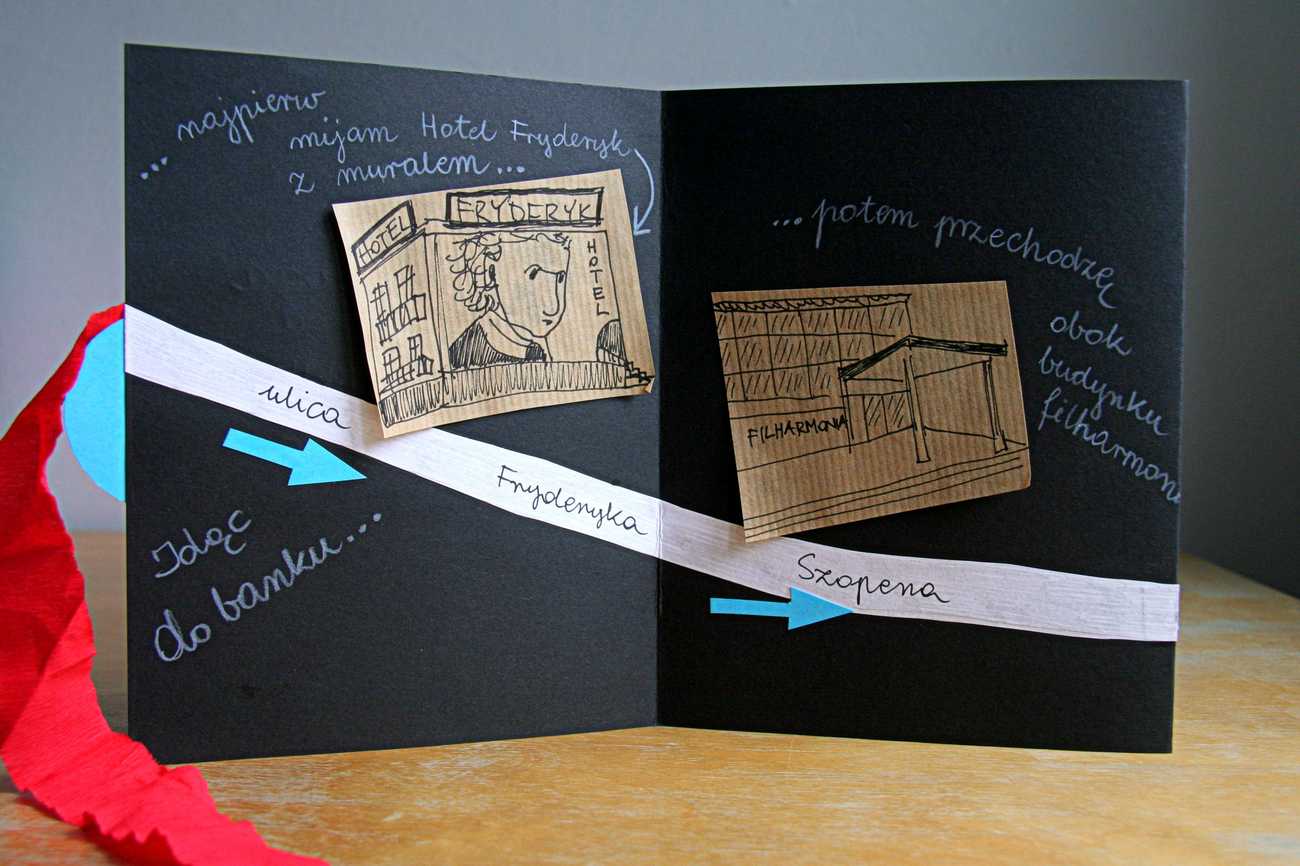 ... najpierw
mijam Hotel Fryderyk
z muralem...
HOTEL
FRYDERYK
HOTEL
ulica
Fryderyka
Idąc
do banku...
... potem przechodzę
obok
budynku
filharmonii
FILHARMONIA
Szopena